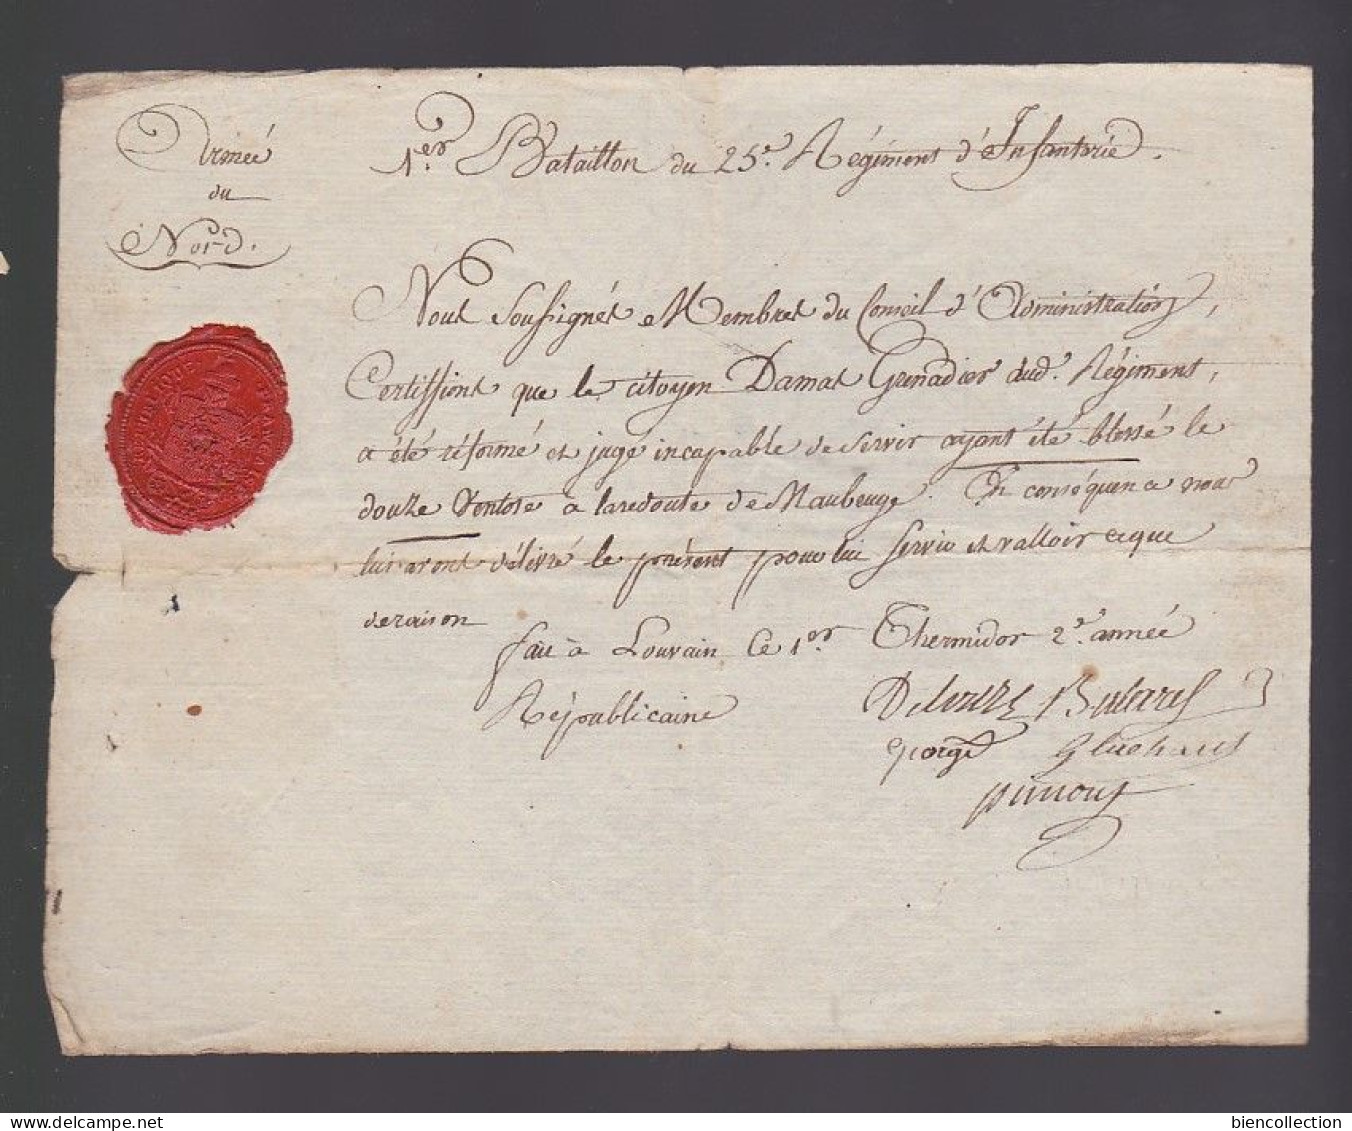 Armée
du
Nord.
1er. Bataillon du 25e. Régiment d'Infanterie.
Nous Soussignés Membres du Conseil d'Administration,
Certiffions que le citoyen Damas Grenadier dud. Régiment,
a été réformé et jugé incapable de Servir ayant été blessé le
douze Ventose à la redoute de Maubeuge. En conséquence nous
lui avons délivré le présent pour lui Servir et valloir ce que
de raison
fait à Louvain Ce 1er. Thermidor 2e. année
Républicaine
george
RÉPUBLIQUE FRANÇAISE
biencollection